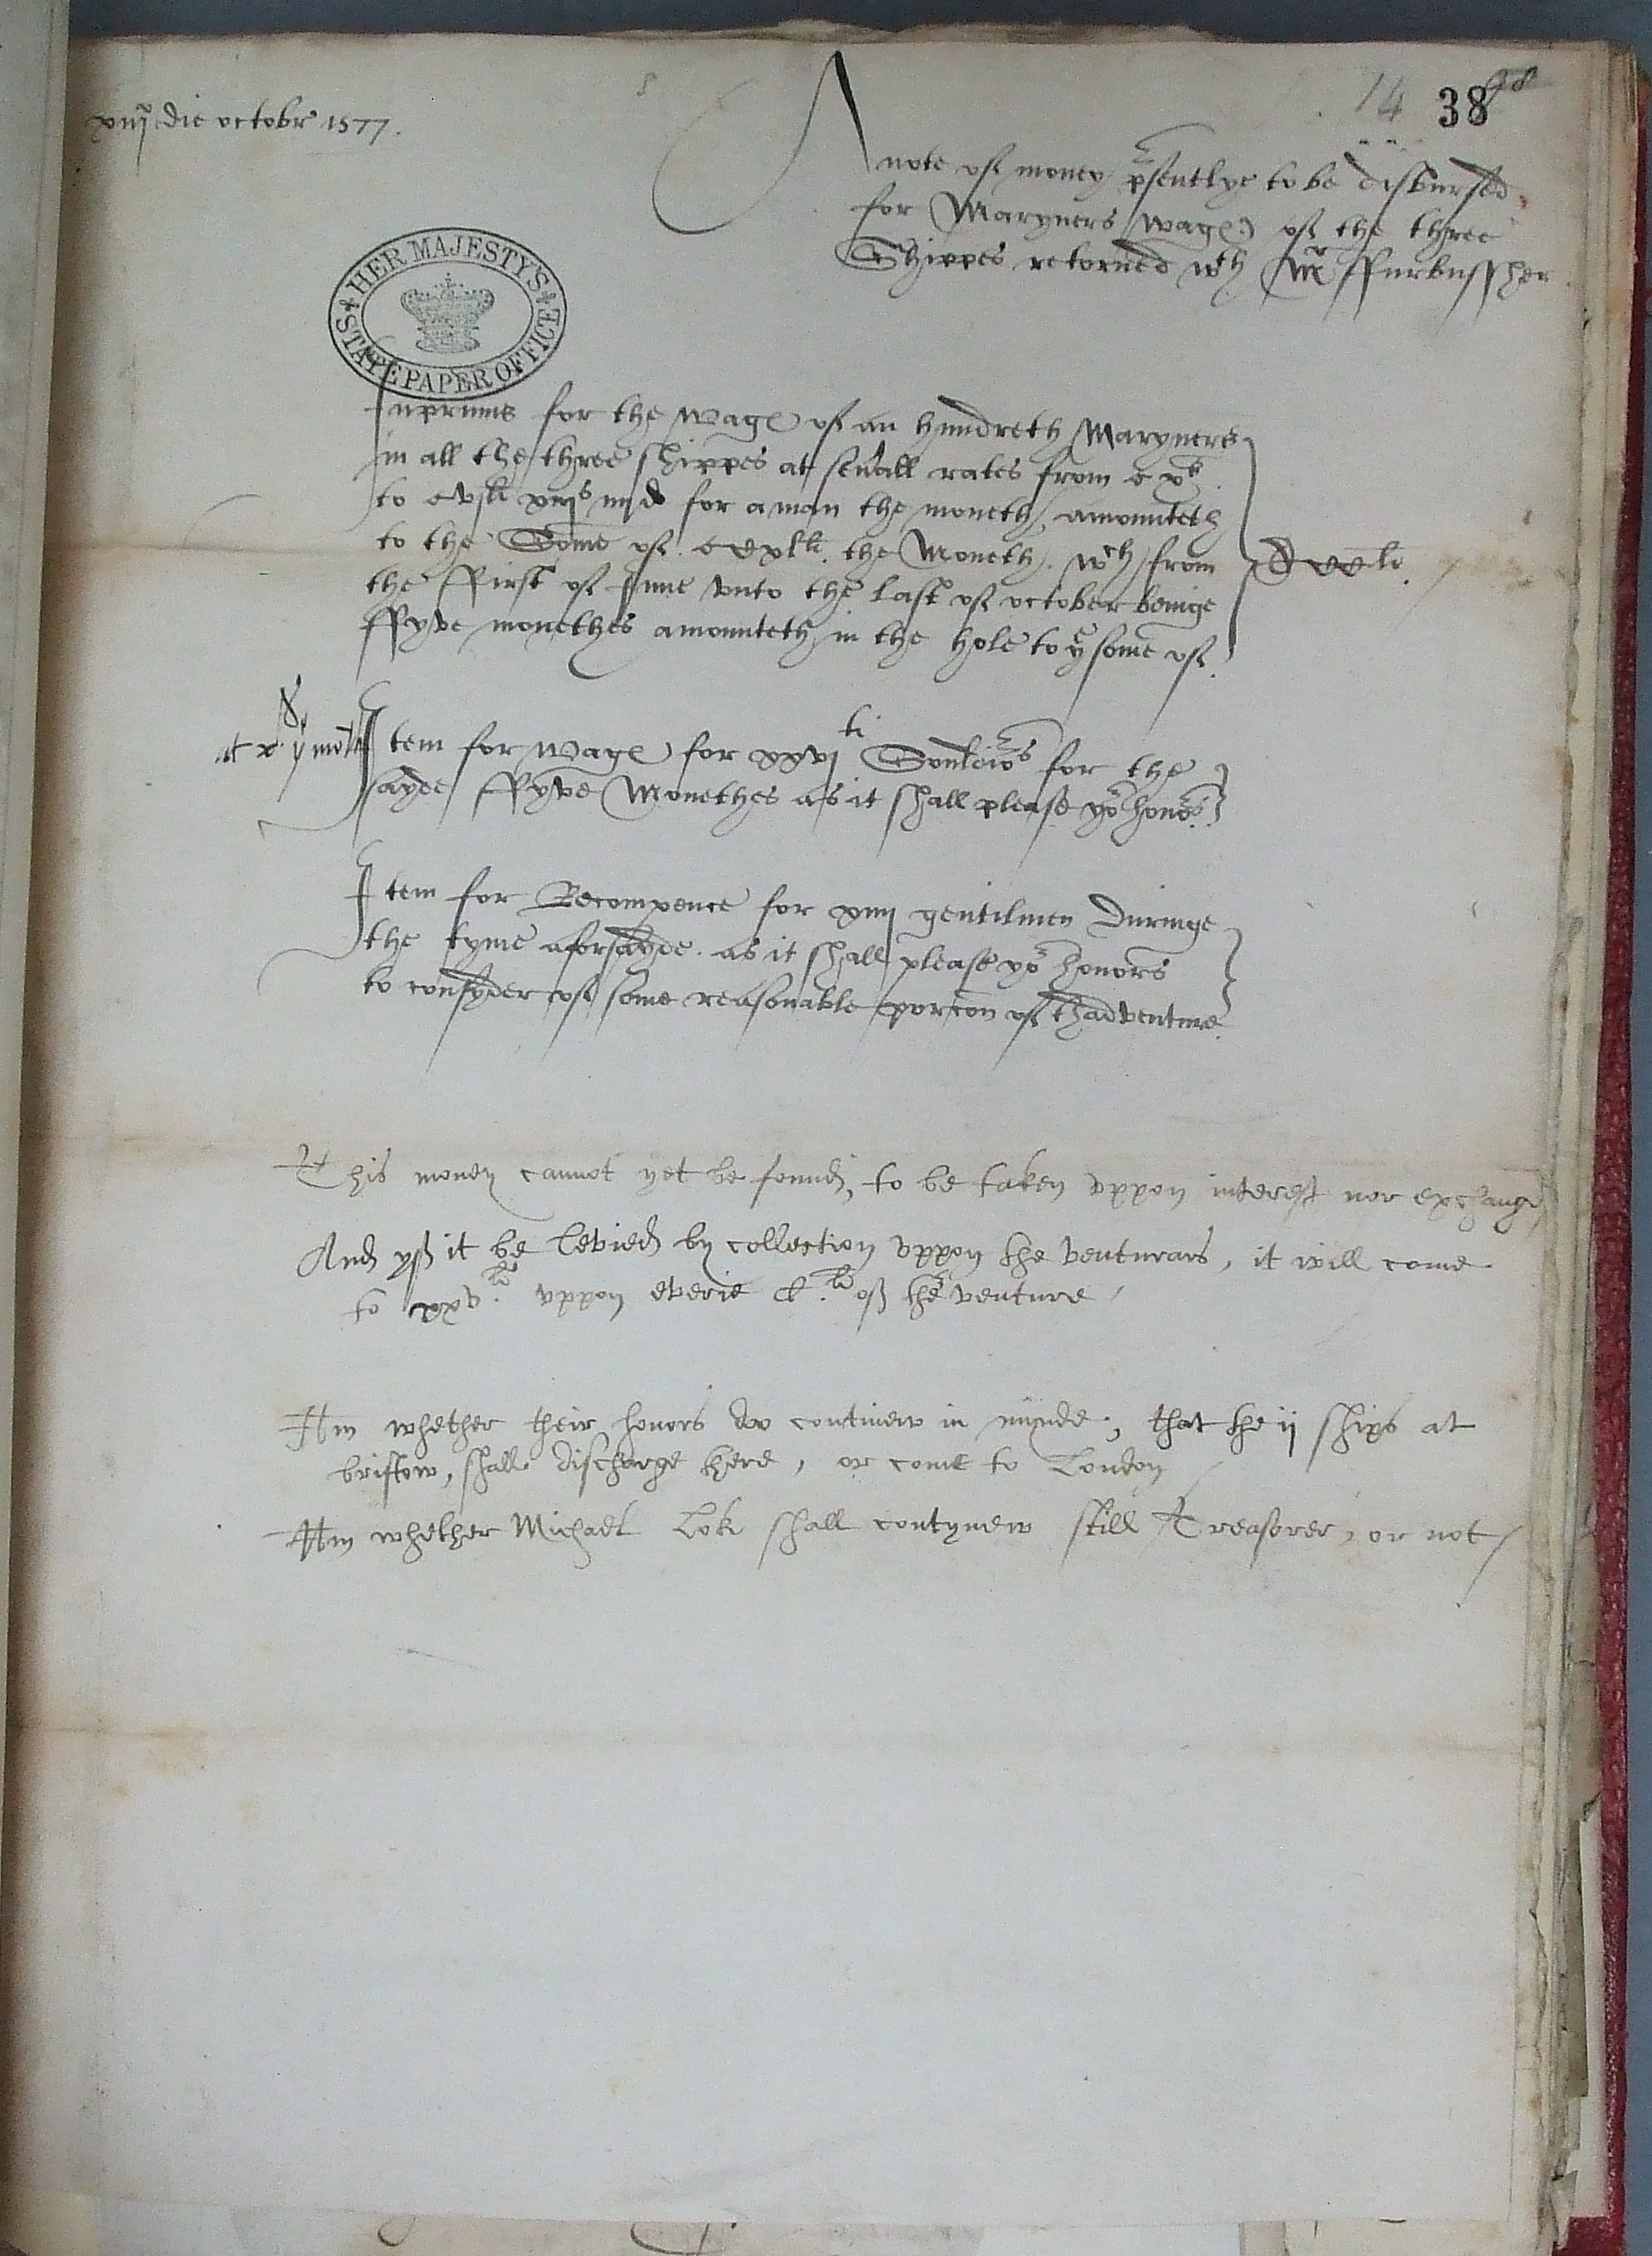 14 38
xiiij die octobr 1577.
A note of money psentlye to be disbursed
for Maryners wages of the three
Shippes retorned wth Mr ffurbussher
HER MAJESTY'S
STATE PAPER OFFICE
Inprimis for the wages of an hundreth Maryners
in all the three shippes at seuall rates from
to xiijs iiijd for a man the moneth, amounteth
to the Some of ccxlli. the Moneth. wch from
the ffirst of June vnto the last of october beinge
ffyve monethes amounteth in the hole to ye some of
li.
at xs ye moth
Item for wages for xxvjti Souldiors for the
sayde ffyve Monethes as it shall please yor honors
Item for Recompence for xiiij gentilmen Duringe
the tyme aforsayde. as it shall please yor honors
to consyder of some reasonable porcon of thadventure
This money cannot yet be found, to be taken vppon interest nor exchange
And yf it be levied by collection vppon the venturars, it will come
to xxv li. vppon everie Cli. of the venture
Itm whether their honors do continew in mynde, that the ij ships at
bristow, shall discharge there, or come to London
Itm whether Michael Lok shall contynew still Treasorer, or not